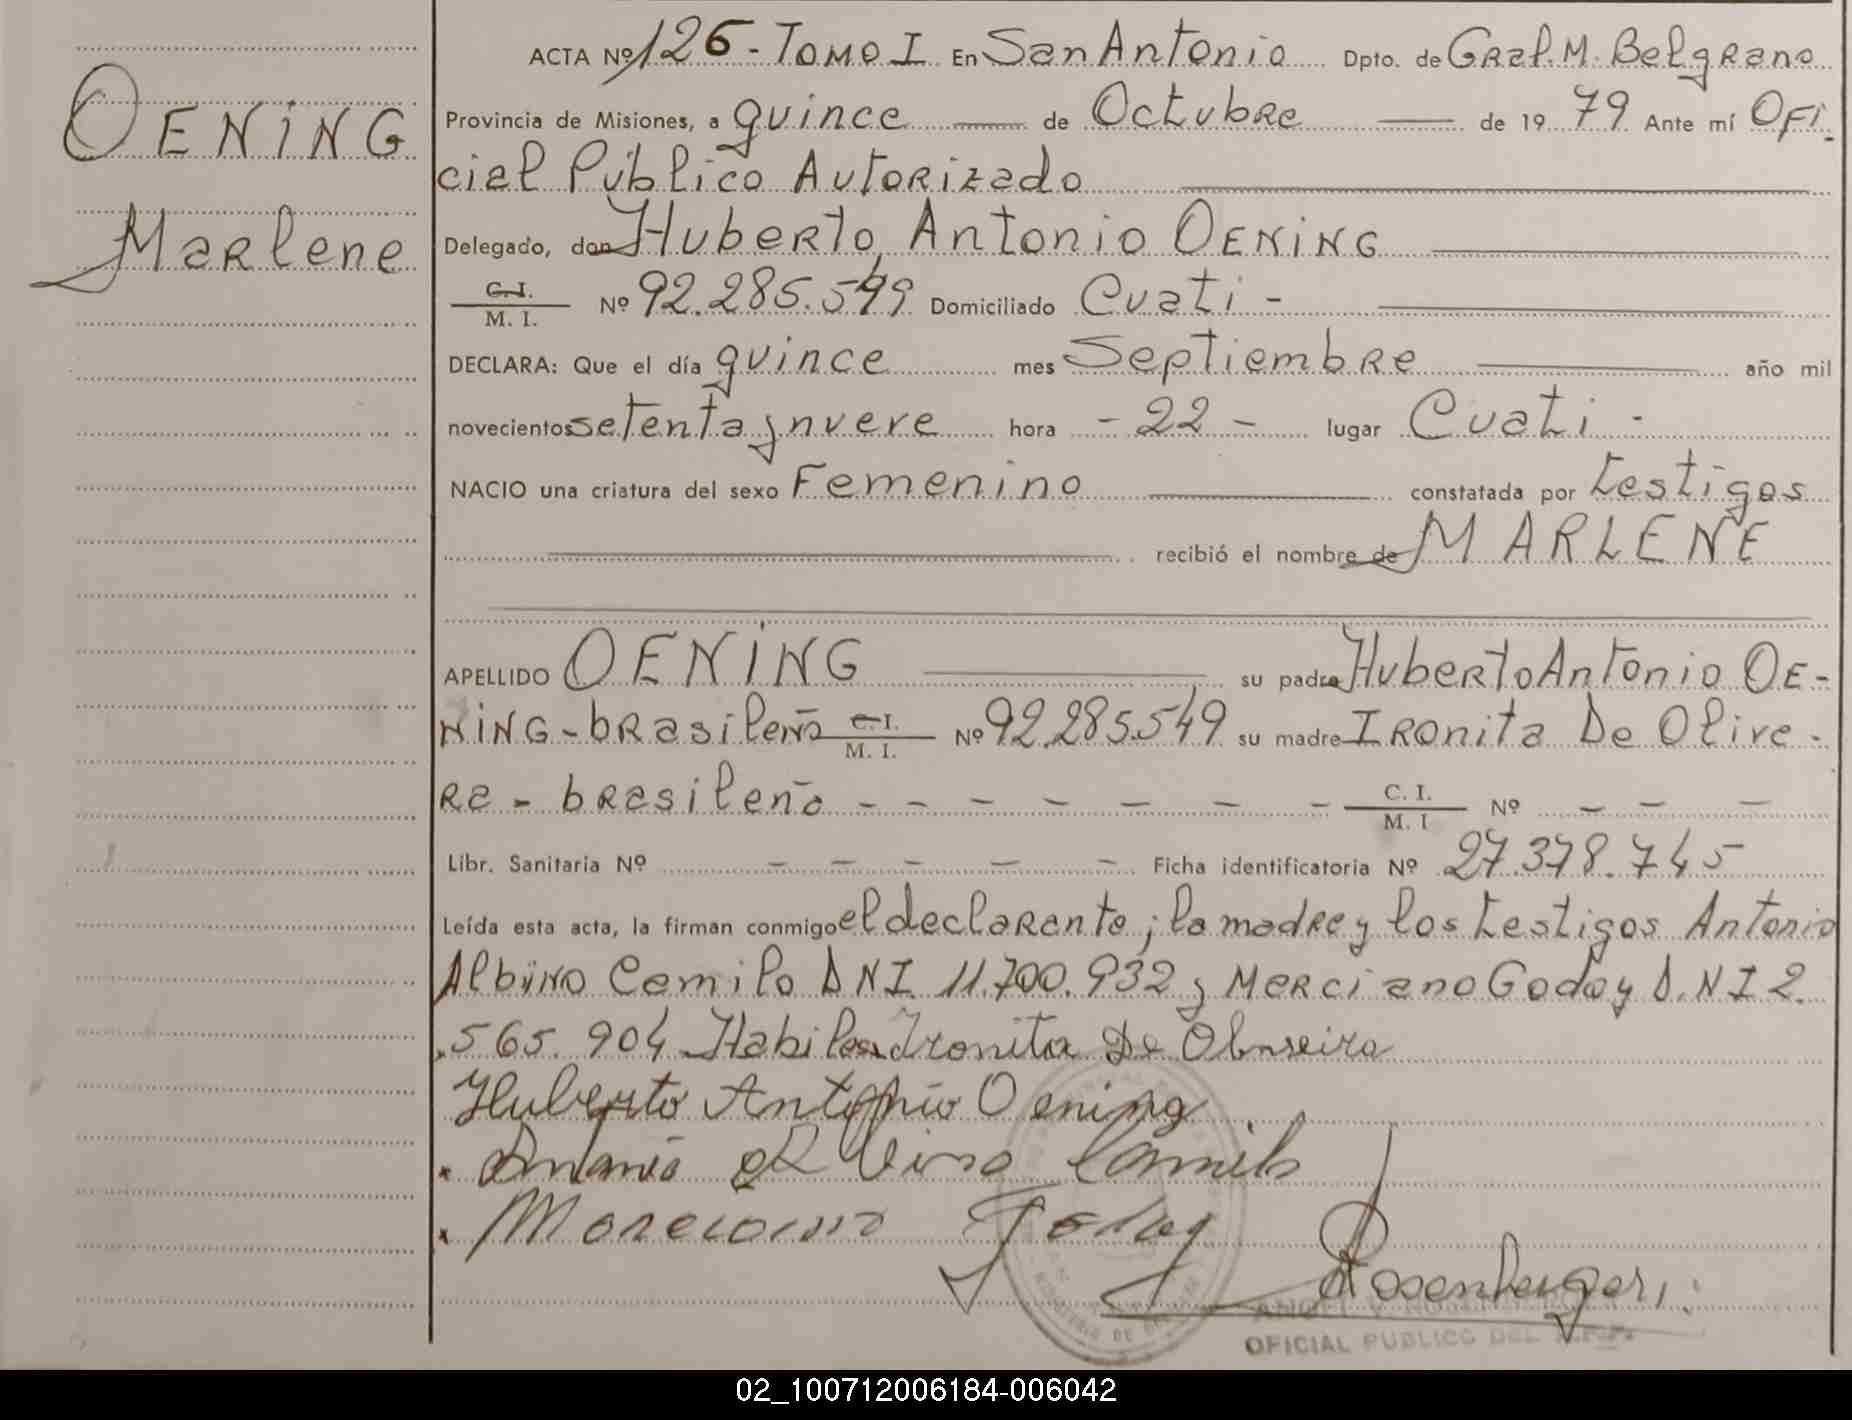 OENING
Marlene
ACTA Nº 126 - TOMO I En San Antonio Dpto. de Gral. M. Belgrano
Provincia de Misiones, a quince de Octubre de 19 79 Ante mí Ofi-
cial Público Autorizado
Delegado, don Huberto Antonio OENING
C. I. / M. I. Nº 92.285.549 Domiciliado Cuati -
DECLARA: Que el día quince mes Septiembre año mil
novecientos setenta y nueve hora - 22 - lugar Cuati -
NACIO una criatura del sexo Femenino constatada por testigos
recibió el nombre de MARLENE
APELLIDO OENING su padre Huberto Antonio OE-
NING - brasileño C. I. / M. I. Nº 92.285.549 su madre Ironita De Olive-
ra - brasileño - - - - - - - C. I. / M. I Nº - - -
Libr. Sanitaria Nº - - - - - Ficha identificatoria Nº 27.378.745
Leída esta acta, la firman conmigo el declarante; la madre y los testigos Antonio
Albino Camilo DNI 11.700.932 y Marciano Godoy D.NI 2.
.565.904 Habiles Ironita De Oliveira
Huberto Antonio Oening
Antonio Albino Camilo
Marciano Godoy
Rosenberger
OFICIAL PUBLICO DEL
02_100712006184-006042